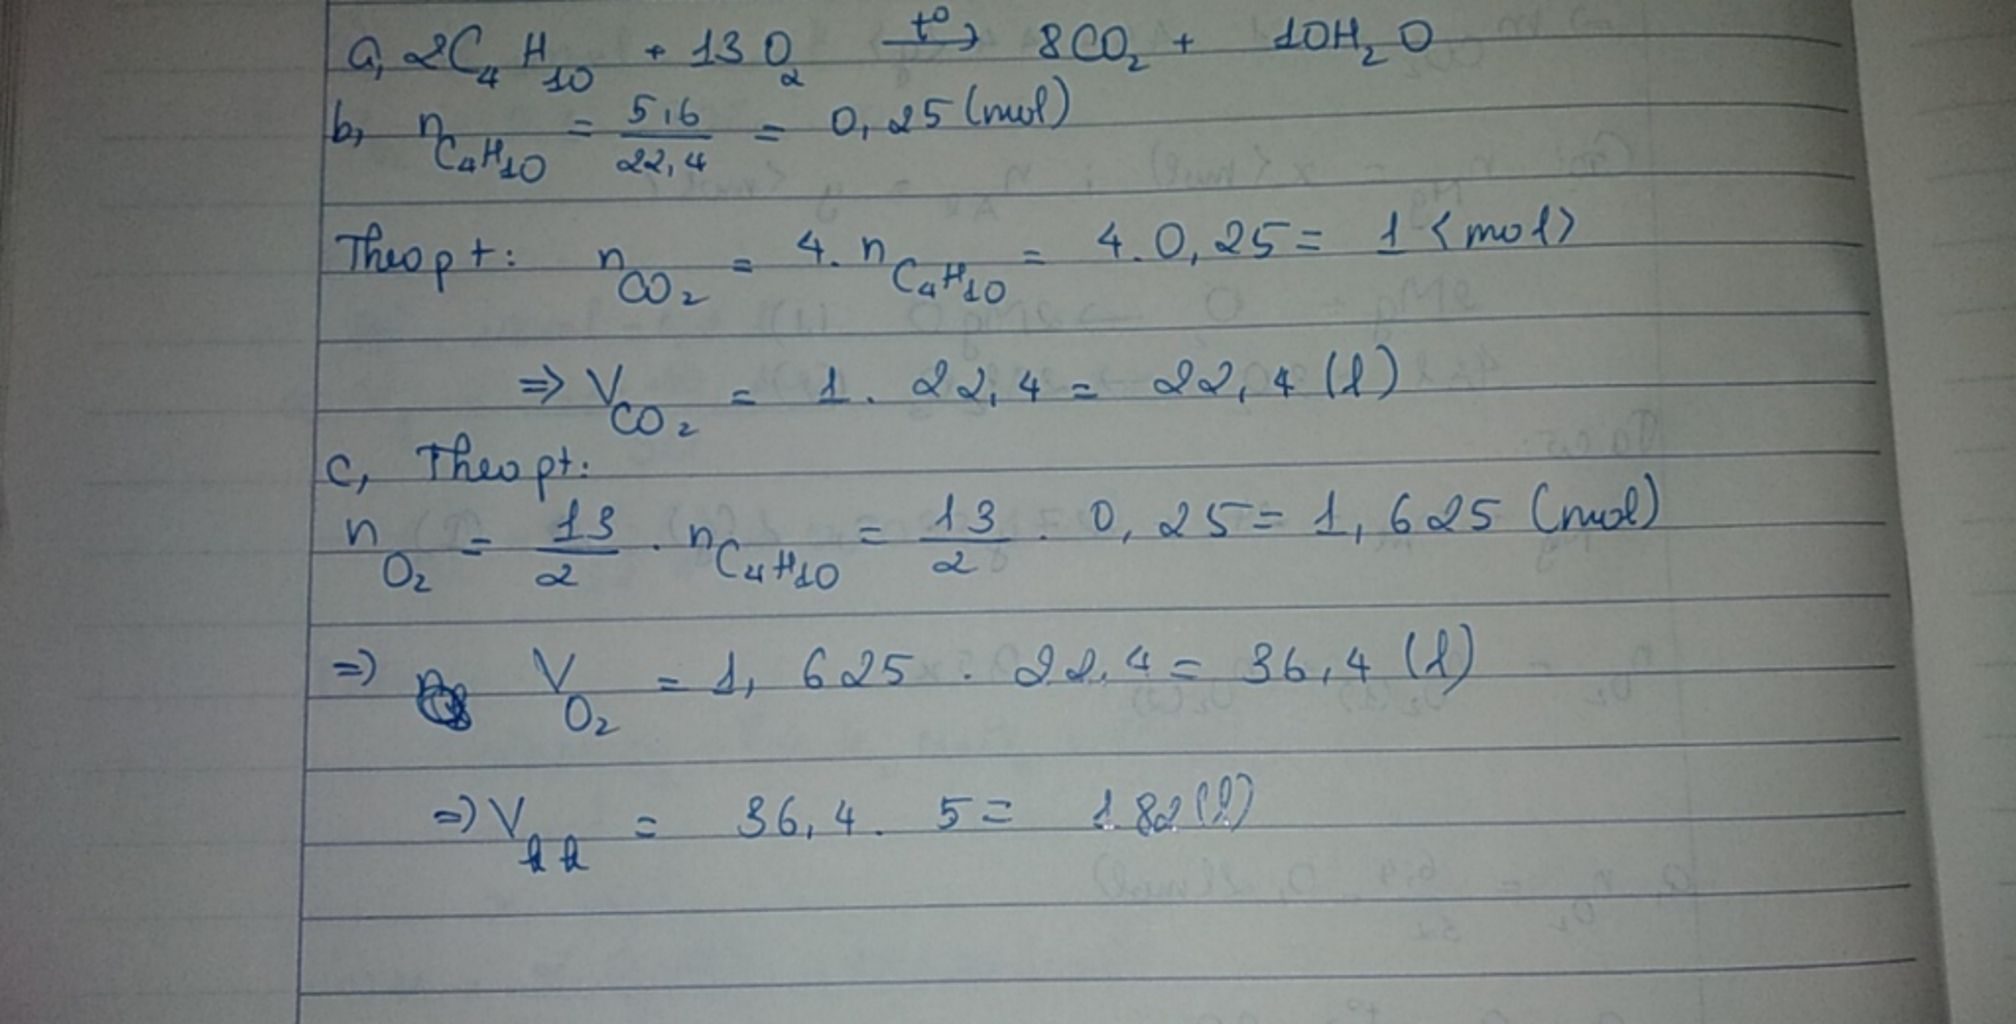 a, 2C₄H₁₀ + 13O₂ t⁰→ 8CO₂ + 10H₂O
b, n C₄H₁₀ = 5,6/22,4 = 0,25 (mol)
Theo pt: n CO₂ = 4. n C₄H₁₀ = 4.0,25 = 1 <mol>
=> V CO₂ = 1. 22,4 = 22,4 (l)
c, Theo pt:
n O₂ = 13/2 . n C₄H₁₀ = 13/2 . 0,25 = 1,625 (mol)
=> V O₂ = 1,625 . 22,4 = 36,4 (l)
=> V kk = 36,4. 5 = 182 (l)